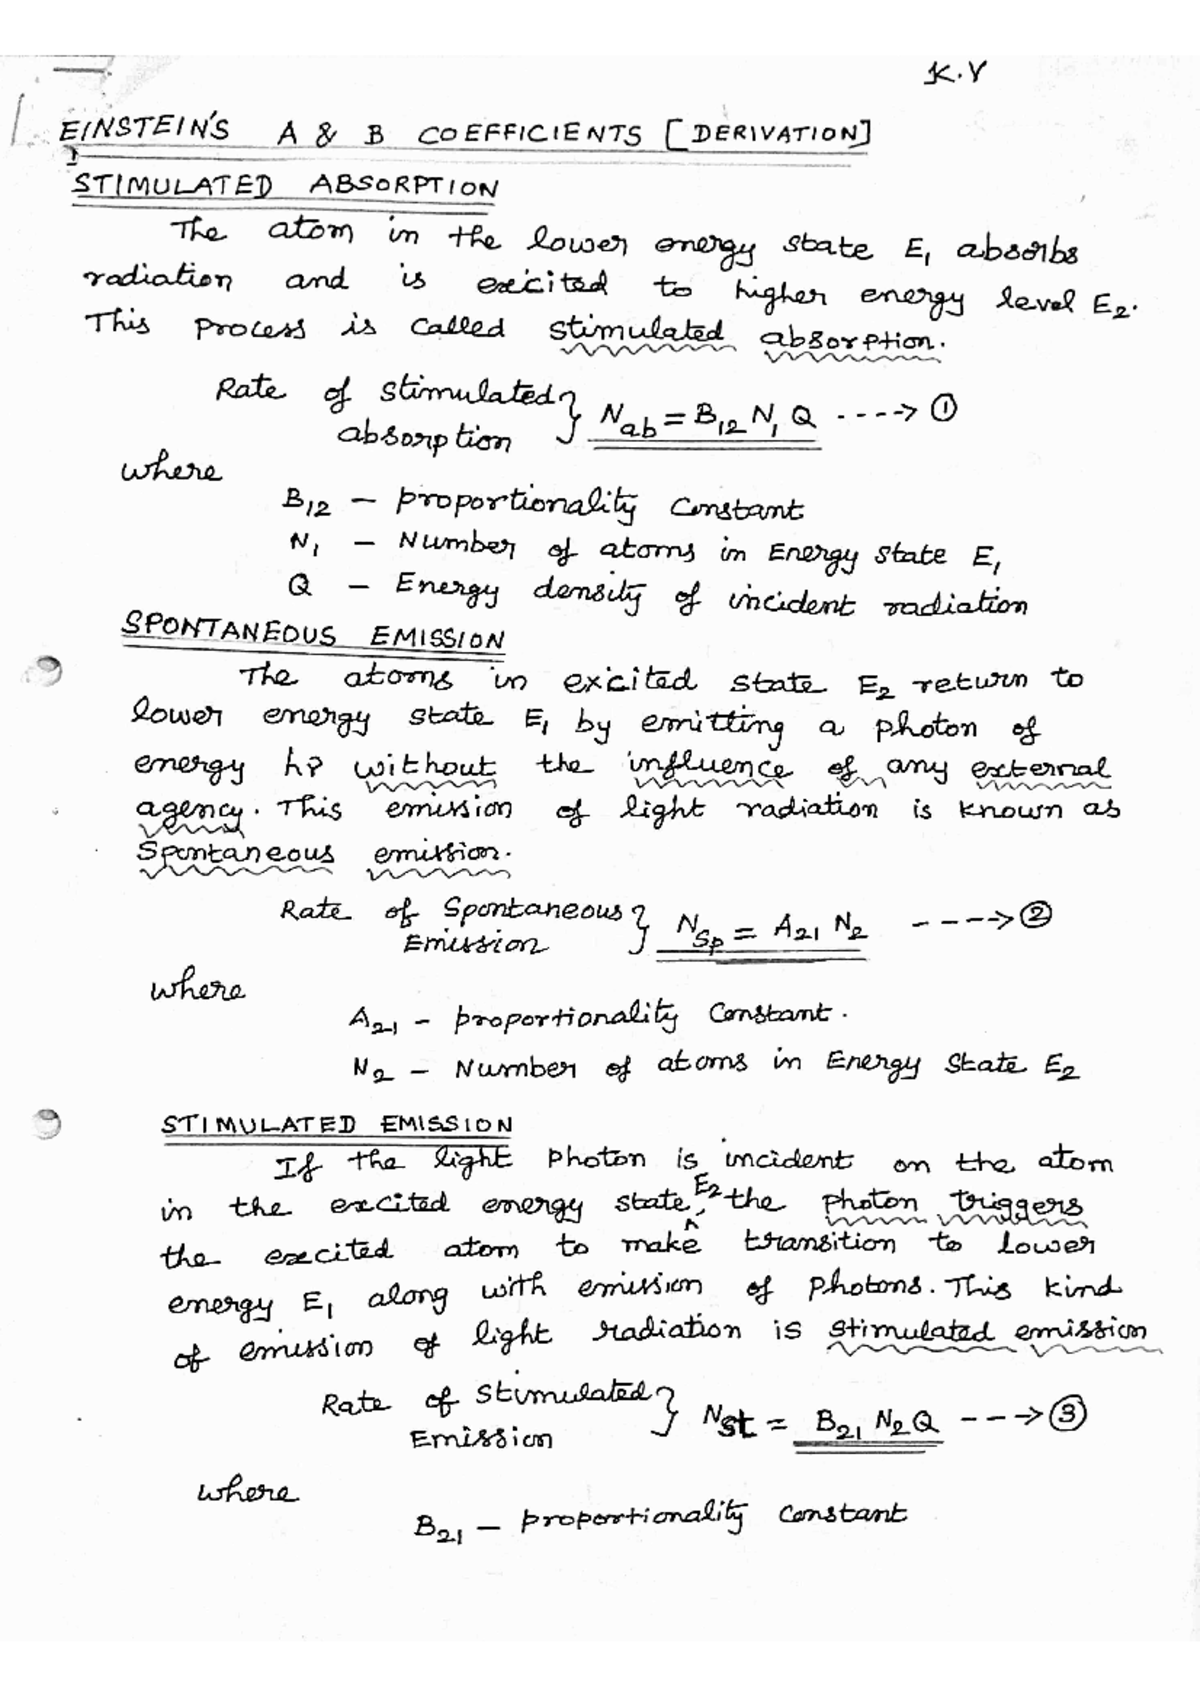 K.V
EINSTEIN'S A & B COEFFICIENTS [DERIVATION]
STIMULATED ABSORPTION
The atom in the lower energy state E₁ absorbs
radiation and is excited to higher energy level E₂.
This process is called stimulated absorption.
Rate of stimulated } N_ab = B₁₂ N₁ Q ----> ①
absorption
where
B₁₂ – proportionality constant
N₁ – Number of atoms in Energy state E₁
Q – Energy density of incident radiation
SPONTANEOUS EMISSION
The atoms in excited state E₂ return to
lower energy state E₁ by emitting a photon of
energy hν without the influence of any external
agency. This emission of light radiation is known as
Spontaneous emission.
Rate of Spontaneous } N_sp = A₂₁ N₂ ----> ②
Emission
where
A₂₁ – proportionality constant.
N₂ – Number of atoms in Energy State E₂
STIMULATED EMISSION
If the light photon is incident on the atom
in the excited energy state E₂, the photon triggers
the excited atom to make transition to lower
energy E₁ along with emission of photons. This kind
of emission of light radiation is stimulated emission
Rate of Stimulated } N_st = B₂₁ N₂ Q ---> ③
Emission
where
B₂₁ – proportionality constant